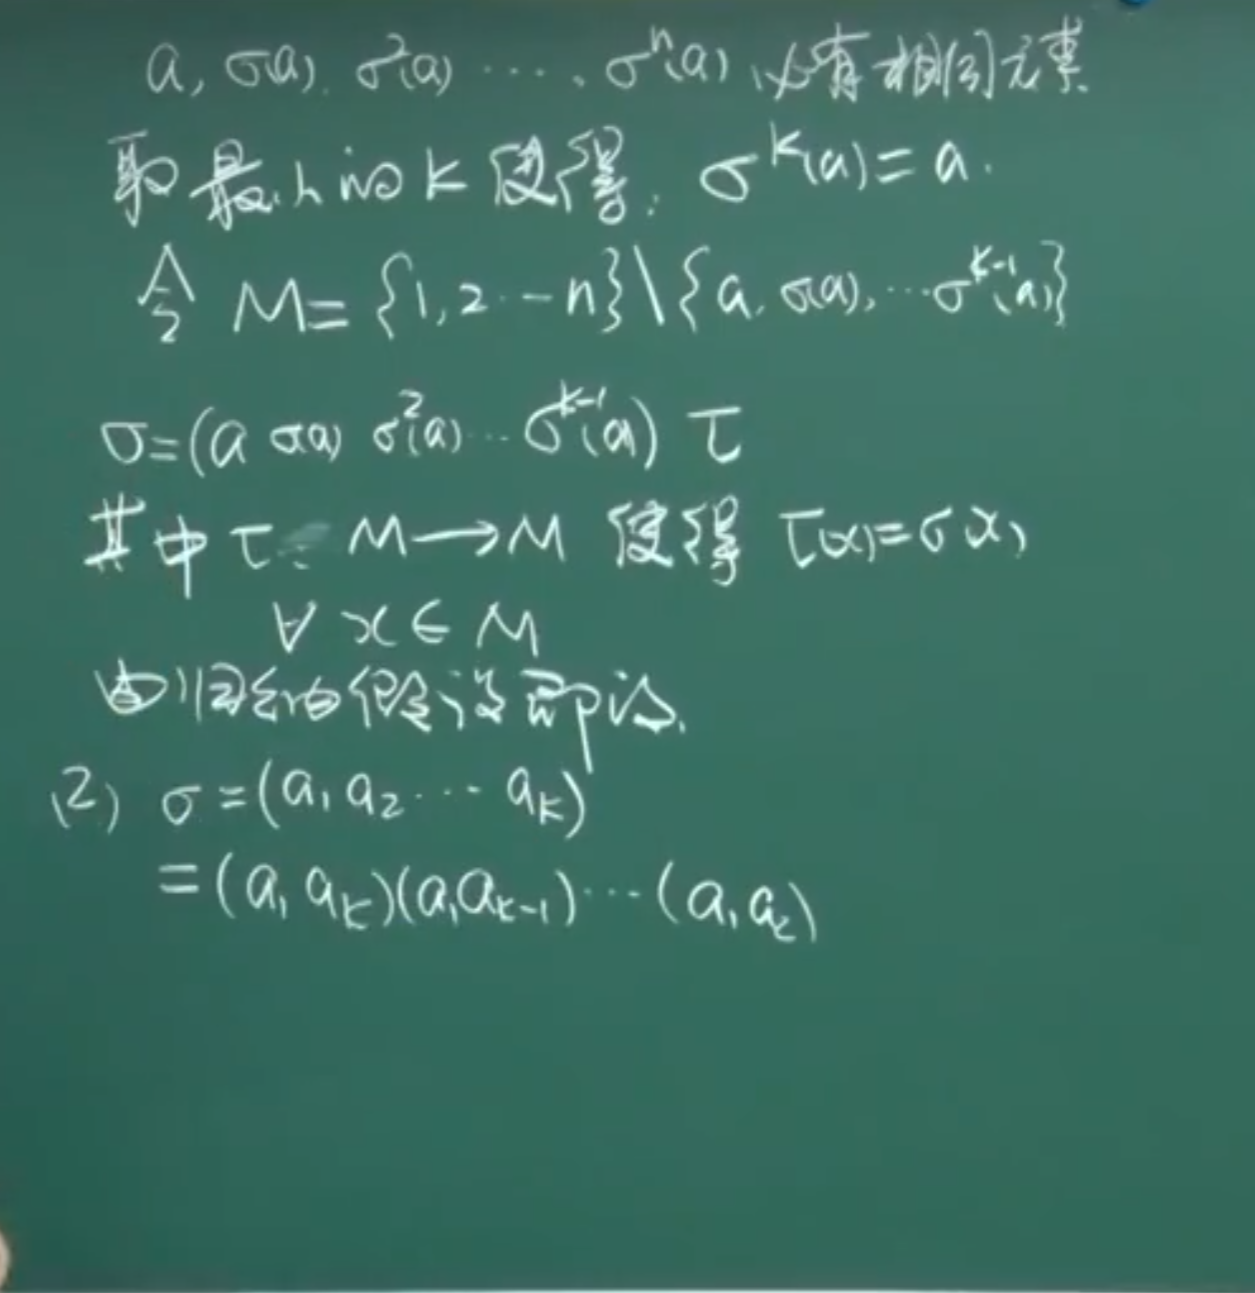 a, σ(a), σ²(a) ⋯, σⁿ(a), 必有相同元素
取最小的k使得: σᵏ(a)=a.
令 M={1,2⋯n}\{a, σ(a),⋯σᵏ⁻¹(a)}
σ=(a σ(a) σ²(a)⋯σᵏ⁻¹(a)) τ
其中τ: M→M 使得 τ(x)=σ(x),
∀ x∈M
由归纳假设即可证.
(2) σ=(a₁ a₂ ⋯ aₖ)
=(a₁ aₖ)(a₁ aₖ₋₁)⋯(a₁ a₂)